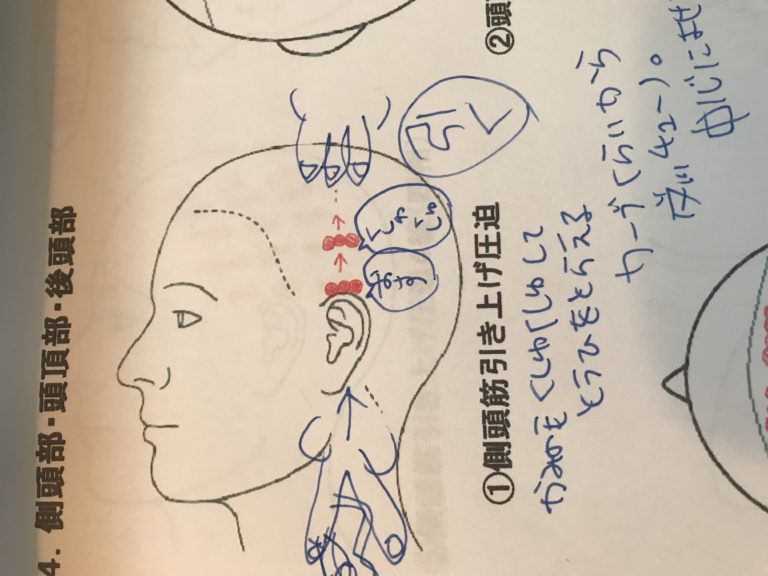 4. 側頭部・頭頂部・後頭部
おす
くしゅくしゅ
引く
①側頭筋引き上げ圧迫
②頭
かみの毛くしゅくしゅして
とうひをとらえる
カーブくらいから
中心によせ